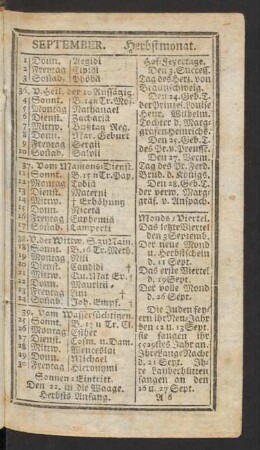 SEPTEMBER. Herbstmonat.
1 Donn. Aegidi
2 Freytag
3 Soñab. Phöbä
36. V. Heil. der 10 Aussätzig.
4 Sonnt. B. 14 n Tr. Mos.
5 Montag Nathanael
6 Dienst. Zachariä
7 Mittw. Bußtag Reg.
8 Donn. Mar. Geburt
9 Freytag Sergii
10 Soñab.
37. Vom Mamons-Dienst.
11 Sonnt. B. 15 n Tr.
12 Montag Tobiä
13 Dienst. Materni
14 Mittw. † Erhöhung
15 Donn. Niceta
16 Freytag Euphemiä
17 Soñab. Lamperti
38. V. der Wittw. S. zu Nain.
18 Sonnt. B. 16 Tr.
19 Montag
20 Dienst.
21 Mittw. Ev. Mat
22 Donn. Mauritii
23 Freytag
24 Soñab. Joh. Empf.
39. Vom Wassersüchtigen.
25 Sonnt. B. 17 n Tr. El.
26 Montag
27 Dienst. Cosm. u. Dam.
28 Mittw. Wenceslai
29 Donn. Michael
30 Freytag Hieronymi
Sonnen Eintritt.
Den 22. in die Waage.
Herbsts Anfang.
Hof-Feyertage.
Den 3. Success.
Tag des Herz. von
Braunschweig.
Den 24. Geb. T.
der Prinzeß. Louise
Henr. Wilhelm.
Tochter d. Marg-
grafen Heinrichs.
Den 25. Geb. T.
des Pr. v. Preuß.
Den 27. Verm.
Tag des Pr. Ferd.
Brud. d. Königs.
Den 28. Geb. T.
der verw. Marg-
gräf. v. Anspach.
Monds Viertel.
Das letzte Viertel
den 3 Septemb.
Der neue Mond
u. Herbstschein
d. 11 Sept.
Das erste Viertel
d. 19 Sept.
Der volle Mond
d. 26 Sept.
Die Juden fey-
ern ihr Neu-Jahr
den 12 u. 13 Sept.
sie fangen ihr
Jahr an.
Ihre Lange Nacht
d. 21 Sept. Ih-
re Lauberhütten
fangen an den
26 u. 27 Sept.
A 6